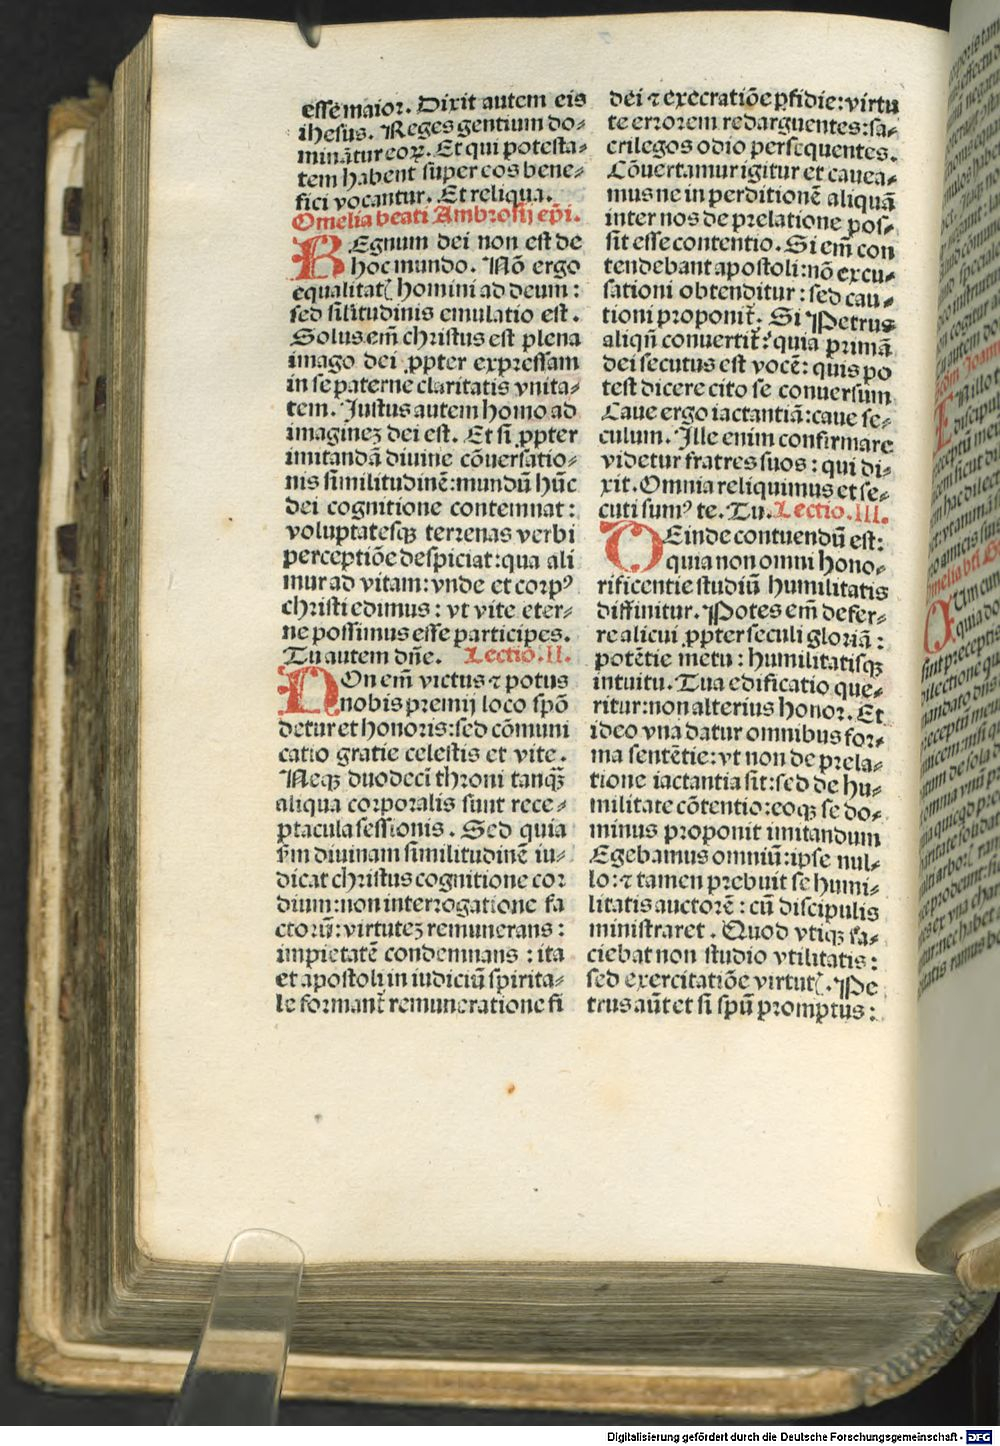 esse maior. Dixit autem eis
ihesus. Reges gentium do⸗
minãtur eoꝝ. Et qui potesta⸗
tem habent super eos bene⸗
fici vocantur. Et reliqua.
Omelia beati Ambrosij ep̃i.
REgnum dei non est de
hoc mundo. Nõ ergo
equalitatꝭ homini ad deum:
sed siľitudinis emulatio est.
Solus em̃ christus est plena
imago dei ꝓpter expressam
in se paterne claritatis vnita⸗
tem. Justus autem homo ad
imaginez dei est. Et si ꝓpter
imitandã diuine cõuersatio⸗
nis similitudinẽ: mundũ hũc
dei cognitione contemnat:
voluptatesqꝫ terrenas verbi
perceptiõe despiciat: qua ali
mur ad vitam: vnde et corpꝰ
christi edimus: vt vite eter⸗
ne possimus esse participes.
Tu autem dñe. Lectio.II.
NOn em̃ victus ⁊ potus
nobis premij loco ꝓpõ
detur et honoris: sed cõmuni
catio gratie celestis et vite.
Neqꝫ duodecĩ throni tanqꝫ̃
aliqua corporalis sunt rece⸗
ptacula sessionis. Sed quia
ẜm diuinam similitudinẽ iu⸗
dicat christus cognitione cor
dium: non interrogatione fa
ctorũ: virtutez remunerans:
impietatẽ condemnans: ita
et apostoli in iudiciũ spirita⸗
le formant̃ remuneratione fi
dei ⁊ execratiõe ꝑfidie: virtu
te errorem redarguentes: sa⸗
crilegos odio persequentes.
Cõuertamur igitur et cauea⸗
mus ne in perditionẽ aliquã
inter nos de prelatione pos⸗
sit esse contentio. Si em̃ con
tendebant apostoli: nõ excu⸗
sationi obtenditur: sed cau⸗
tioni proponit̃. Si Petrus
aliqñ conuertit̃: quia primã
dei secutus est vocẽ: quis po
test dicere cito se conuersum
Caue ergo iactantiã: caue se⸗
culum. Ille enim confirmare
videtur fratres suos: qui di⸗
xit. Omnia reliquimus et se⸗
cuti sumꝰ te. Tu. Lectio.III.
DEinde contuendũ est:
quia non omni hono⸗
rificentie studiũ humilitatis
diffinitur. Potes em̃ defer⸗
re alicui ꝓpter seculi gloriã:
potẽtie metu: humilitatisqꝫ
intuitu. Tua edificatio que⸗
ritur: non alterius honor. Et
ideo vna datur omnibus for⸗
ma sentẽtie: vt non de prela⸗
tione iactantia sit: sed de hu⸗
militate cõtentio: eoqꝫ se do⸗
minus proponit imitandum
Egebamus omniũ: ipse nul⸗
lo: ⁊ tamen prebuit se humi⸗
litatis auctorẽ: cũ discipulis
ministraret. Quod vtiqꝫ fa⸗
ciebat non studio vtilitatis:
sed exercitatiõe virtutꝭ. Pe
trus aũt et si spũ promptus:
Digitalisierung gefördert durch die Deutsche Forschungsgemeinschaft - DFG